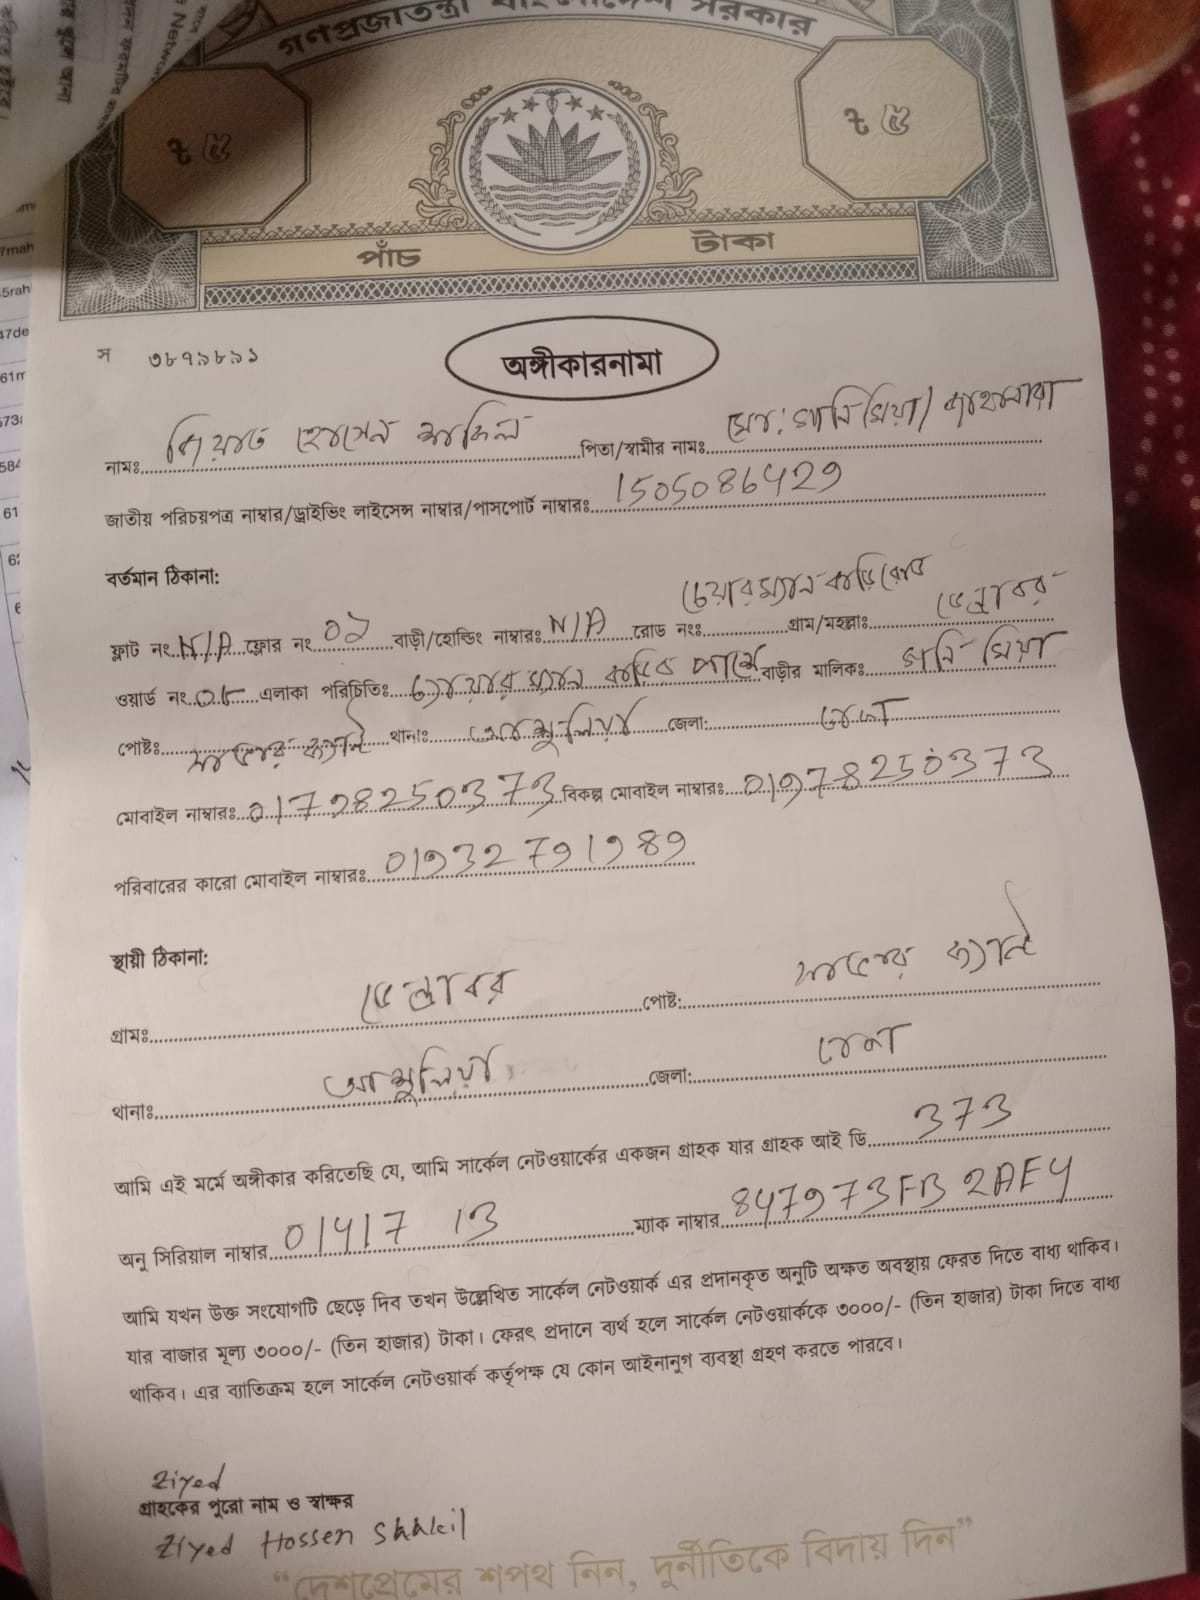 গণপ্রজাতন্ত্রী বাংলাদেশ সরকার
৳ ৫
৳ ৫
পাঁচ টাকা
স ৩৮৭৯৮৯১
অঙ্গীকারনামা
নামঃ জিয়াত হোসেন শাকিল পিতা/স্বামীর নামঃ মোঃ গনি মিয়া/
জাতীয় পরিচয়পত্র নাম্বার/ড্রাইভিং লাইসেন্স নাম্বার/পাসপোর্ট নাম্বারঃ 1505086429
বর্তমান ঠিকানা:
ফ্লাট নং N/A ফ্লোর নং ০১ বাড়ী/হোল্ডিং নাম্বারঃ N/A রোড নংঃ চেয়ারম্যান বাড়ি রোড গ্রাম/মহল্লাঃ
ওয়ার্ড নং ০৮ এলাকা পরিচিতিঃ চেয়ারম্যান বাড়ির পাশে বাড়ীর মালিকঃ গনি মিয়া
পোষ্টঃ থানাঃ আশুলিয়া জেলা: ঢাকা
মোবাইল নাম্বারঃ বিকল্প মোবাইল নাম্বারঃ 01978250373
পরিবারের কারো মোবাইল নাম্বারঃ 01932791989
স্থায়ী ঠিকানা:
গ্রামঃ পোষ্ট:
থানাঃ আশুলিয়া জেলা: ঢাকা
আমি এই মর্মে অঙ্গীকার করিতেছি যে, আমি সার্কেল নেটওয়ার্কের একজন গ্রাহক যার গ্রাহক আই ডি 373
অনু সিরিয়াল নাম্বার 01417 13 ম্যাক নাম্বার 847973FB2AF4
আমি যখন উক্ত সংযোগটি ছেড়ে দিব তখন উল্লেখিত সার্কেল নেটওয়ার্ক এর প্রদানকৃত অনুটি অক্ষত অবস্থায় ফেরত দিতে বাধ্য থাকিব।
যার বাজার মূল্য ৩০০০/- (তিন হাজার) টাকা। ফেরৎ প্রদানে ব্যর্থ হলে সার্কেল নেটওয়ার্ককে ৩০০০/- (তিন হাজার) টাকা দিতে বাধ্য
থাকিব। এর ব্যাতিক্রম হলে সার্কেল নেটওয়ার্ক কর্তৃপক্ষ যে কোন আইনানুগ ব্যবস্থা গ্রহণ করতে পারবে।
Ziyed
গ্রাহকের পুরো নাম ও স্বাক্ষর
Ziyed Hossen Shakil
“দেশপ্রেমের শপথ নিন, দুর্নীতিকে বিদায় দিন”